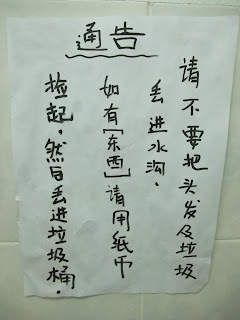 通告
请不要把头发及垃圾
丢进水沟.
如有[东西]请用纸币
捡起,然后丢进垃圾桶.